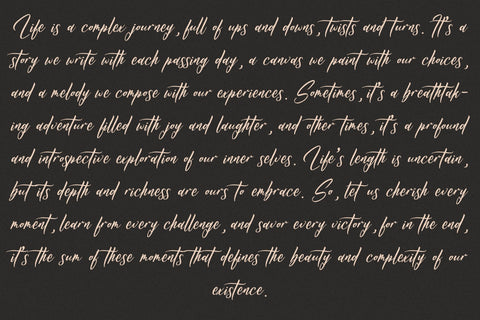 Life is a complex journey, full of ups and downs, twists and turns. It's a
story we write with each passing day, a canvas we paint with our choices,
and a melody we compose with our experiences. Sometimes, it's a breathtak-
ing adventure filled with joy and laughter, and other times, it's a profound
and introspective exploration of our inner selves. Life's length is uncertain,
but its depth and richness are ours to embrace. So, let us cherish every
moment, learn from every challenge, and savor every victory, for in the end,
it's the sum of these moments that defines the beauty and complexity of our
existence.